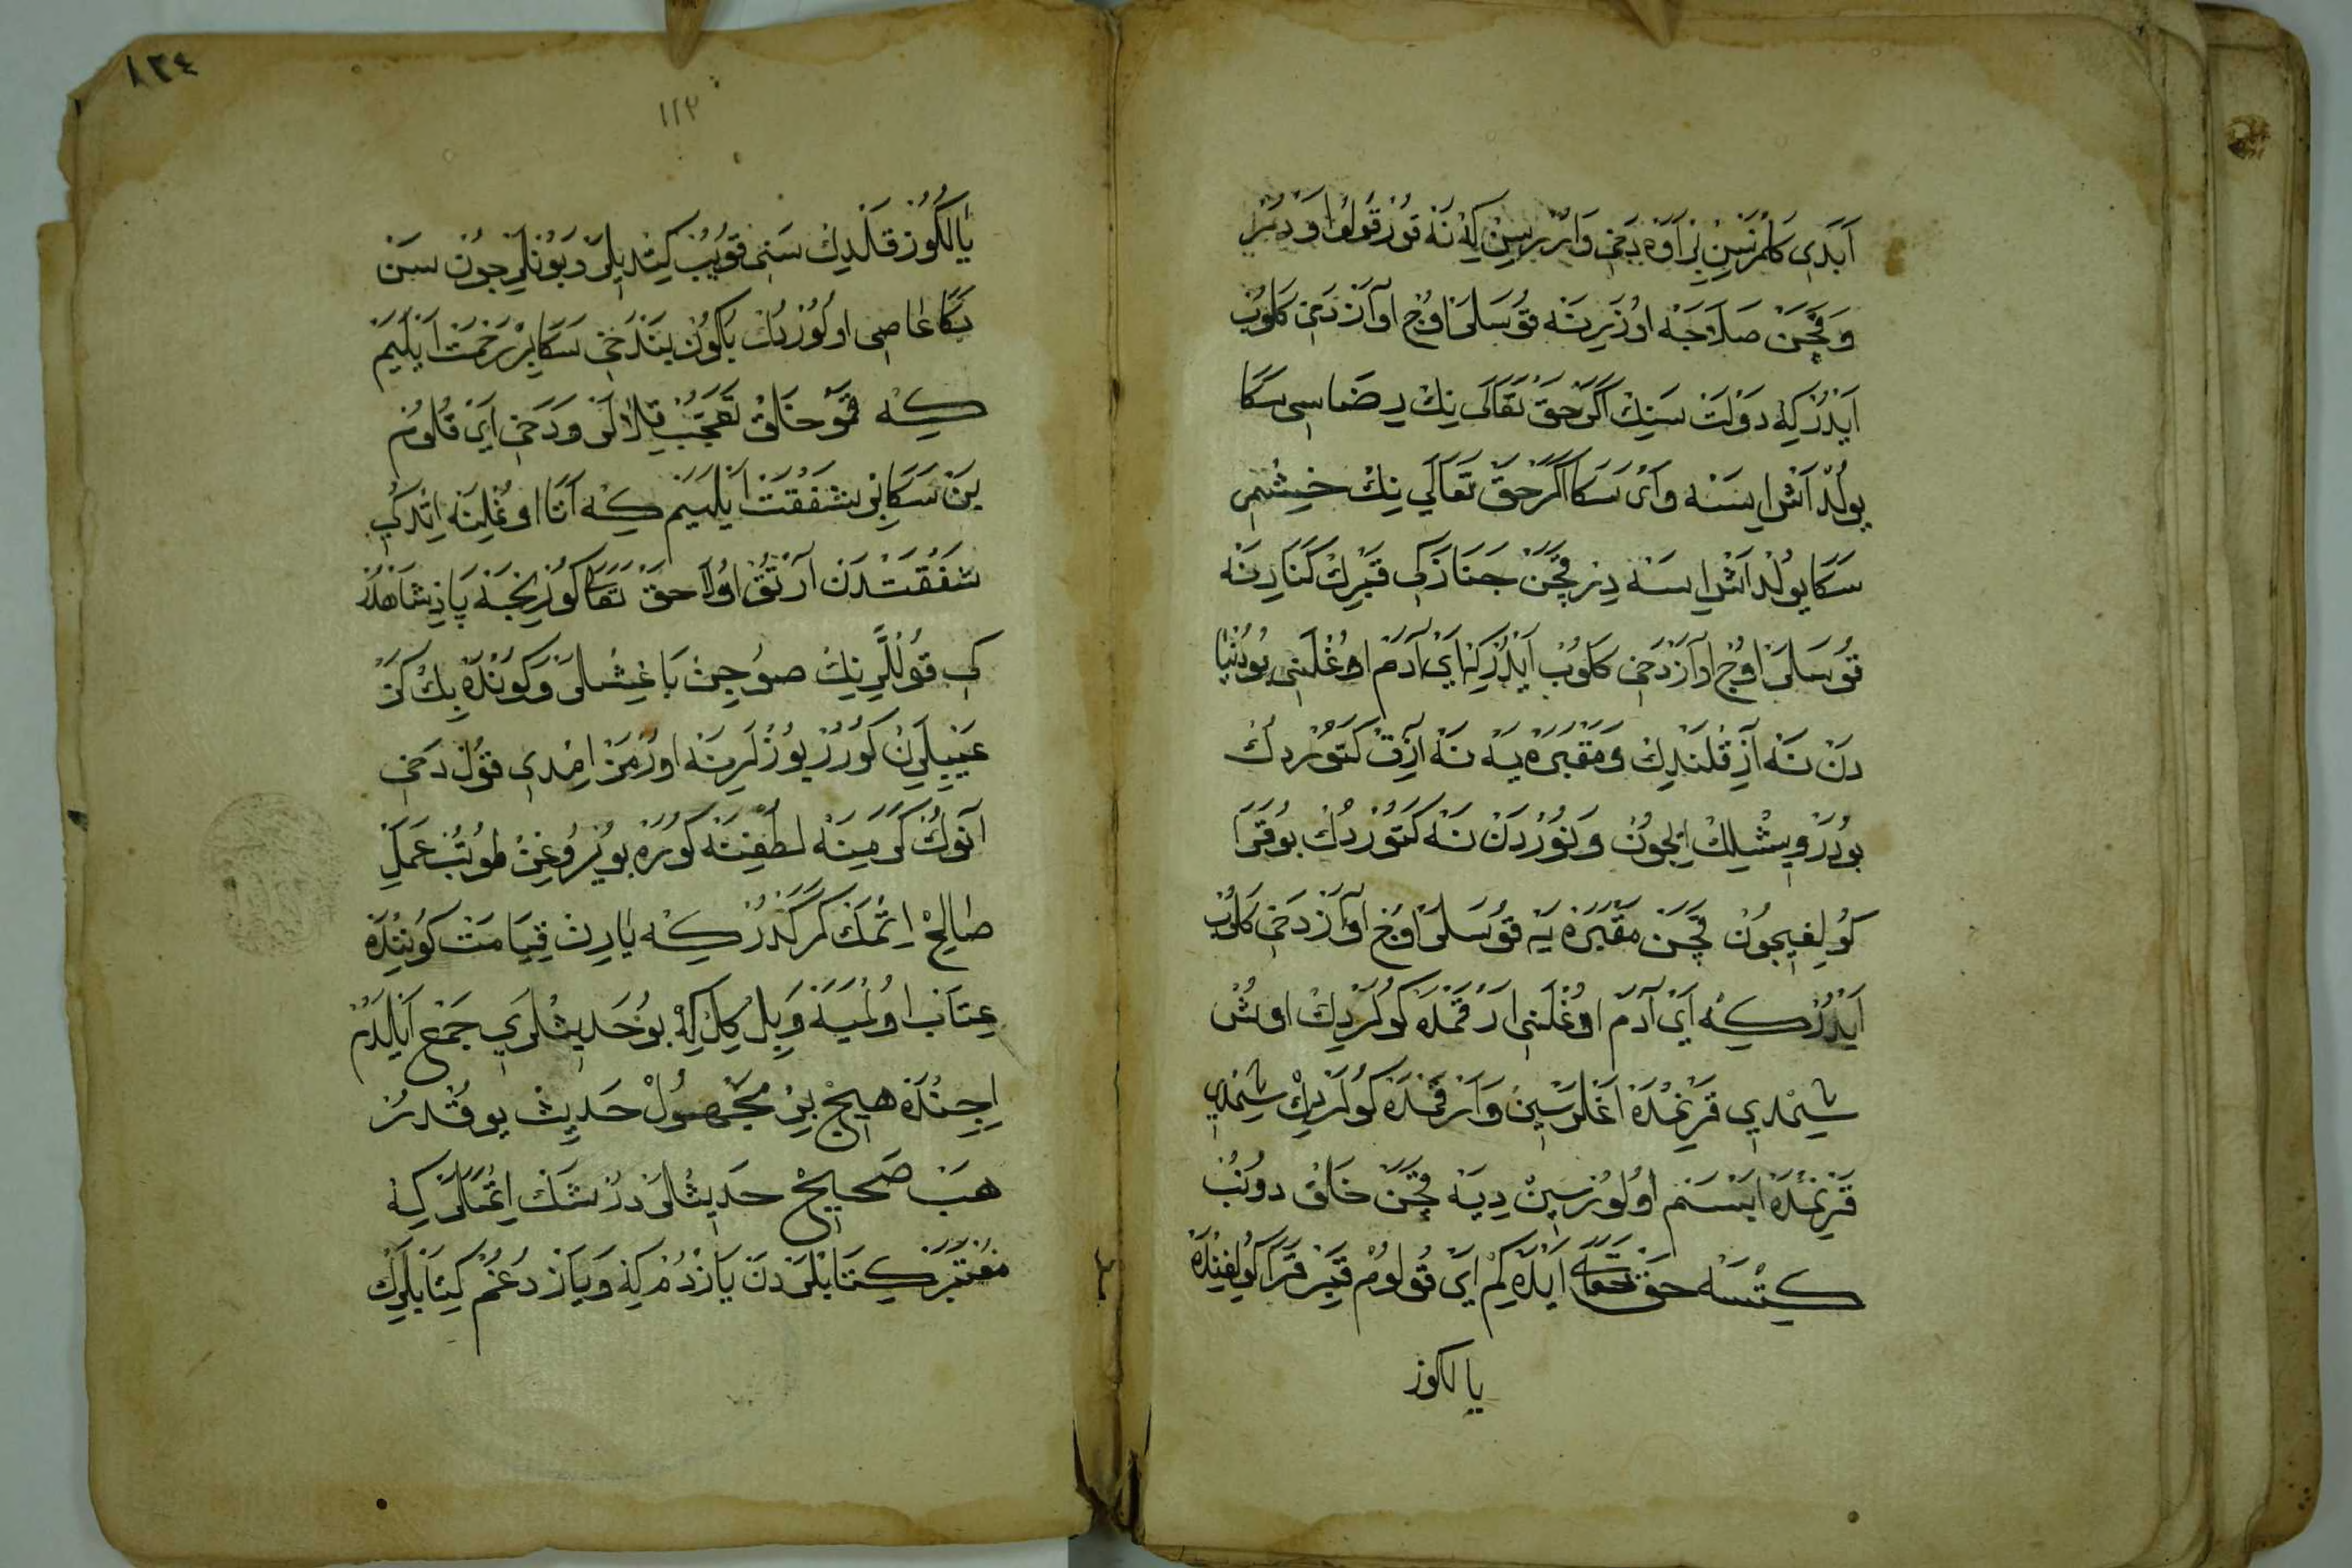 اَبَدِى كَلْمَزْسِنْ بِرْ اَوَهْ دَخِى وَارُرْسِنْ كِهْ نَهْ قَوُزْ قَوُلُوْ اَوْدَمَزْ
وَقَچَنْ صَلَاجَهْ اُوزَرِينَهْ قُوسَلَرْ اُوچْ اٰوَازْ دَخِى كَلُوبْ
اَيْدُرْ كِهْ دَوْلَتْ سَنِكْ اَكَرْ حَقْ تَعَالَى نِكْ رِضَاسِى سَكَا
يُولْدَاشْ اِيسَهْ وَاىْ سَكَا اَكَرْ حَقْ تَعَالَى نِكْ خِشْمِى
سَكَا يُولْدَاشْ اِيسَهْ دِرْ قَچَنْ جَنَازَكِى قَبْرِكْ كَنَارِنَهْ
قُوسَلَرْ اُوچْ اٰوَازْ دَخِى كَلُوبْ اَيْدُرْ كِهْ اَىْ اٰدَمْ اُوغْلَنِى بُو دُنْيَا
دَنْ نَهْ اٰزِقْلَنْدِكْ وَمَقْبَرَهْ يَهْ نَهْ اٰزِقْ كَتُورْدُكْ
بُو دَرْوِيشْلِكْ اِيچُونْ وَنُورْدَنْ نَهْ كَتُورْدُكْ بُو قَرَا
كُولِغِيچُونْ قَچَنْ مَقْبَرَهْ يَهْ قُوسَلَرْ اُوچْ اٰوَازْ دَخِى كَلُوبْ
اَيْدُرْ كِهْ اَىْ اٰدَمْ اُوغْلَنِى اَرْقَمْدَهْ كُولَرْدِكْ اُوشْ
شِيمْدِى قَرْنِمْدَهْ اَغْلَرْسِينْ وَاَرْقَمْدَهْ كُولَرْدِكْ شِيمْدِى
قَرْنِمْدَهْ اَبْسَمْ اُولُورْسِينْ دِيَهْ قَچَنْ خَلْقْ دُونُبْ
كِتْسَهْ حَقْ تَعَالَى اَيْدَهْ كِمْ اَىْ قُولُومْ قَبِرْ قَرَاكُولِغِنْدَهْ
يالكوز
يَالْكُوزْ قَلْدِكْ سَنِى قُويُبْ كِتْدِيلَرْ وَبُونْلَرْچُونْ سَنْ
بَكَا عَاصِى اُولُورْدُكْ بُكُونْ بَنْ دَخِى سَكَا بِرْ رَحْمَتْ اَيْلَيَمْ
كِهْ قَمُو خَلْقْ تَعَجُّبْ قِلَالَرْ وَدَخِى اَىْ قُلُومْ
بَنْ سَكَا بِرْ شَفَقَتْ اَيْلَيَمْ كِهْ اَتَا اُوغْلِنَهْ اِتْدُكِى
شَفَقَتْدَنْ اَرْتُقْ اُولَا حَقْ تَعَالَى كُورِيجَهْ پَادِشَاهْدُرْ
كِى قُولْلَرِينِكْ صُوچِينْ بَاغِشْلَرْ وَكُونْدَهْ بِكْ كَزْ
عَيْبِلَرِنْ كُورُرْ يُوزْلَرِينَهْ اُورْمَزْ اِمْدِى قُولْ دَخِى
اٰنُوكْ كَرَمِينَهْ لُطْفِينَهْ كُورَهْ بُويْرُوغِنْ طُوتُبْ عَمَلِ
صَالِحْ اِتْمَكْ كَرَكْدُرْ كِهْ يَارِينْ قِيَامَتْ كُونِنْدَهْ
عِتَابْ اُولْمَيَهْ وَبِلْكِلْ كِهْ بُو حَدِيثْلَرِى جَمْعْ اَيْلَدُمْ
اِچِنْدَهْ هِيچْ بِرْ مَجْهُولْ حَدِيثْ يُوقْدُرْ
هَبْ صَحِيحْ حَدِيثْلَرْدُرْ شَكْ اِتْمَيَلَرْ كِهْ
مُعْتَبَرْ كِتَابْلَرْدَنْ يَازْدُمْ كِهْ وَيَازْدُغُمْ كِتَابْلَرِكْ
٨٣٤
١١٣